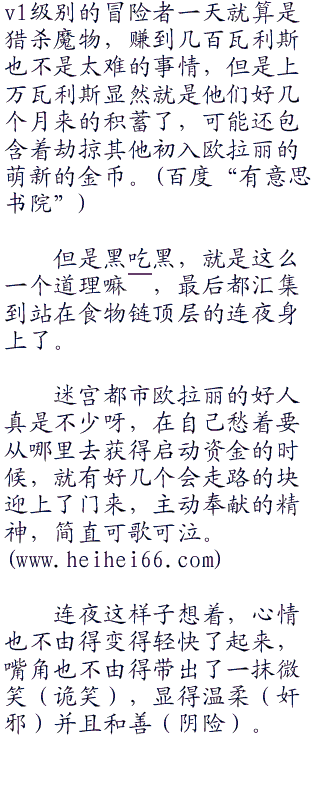 v1级别的冒险者一天就算是
猎杀魔物，赚到几百瓦利斯
也不是太难的事情，但是上
万瓦利斯显然就是他们好几
个月来的积蓄了，可能还包
含着劫掠其他初入欧拉丽的
萌新的金币。(百度“有意思
书院”)
但是黑吃黑，就是这么
一个道理嘛——，最后都汇集
到站在食物链顶层的连夜身
上了。
迷宫都市欧拉丽的好人
真是不少呀，在自己愁着要
从哪里去获得启动资金的时
候，就有好几个会走路的块
迎上了门来，主动奉献的精
神，简直可歌可泣。
(www.heihei66.com)
连夜这样子想着，心情
也不由得变得轻快了起来，
嘴角也不由得带出了一抹微
笑（诡笑），显得温柔（奸
邪）并且和善（阴险）。